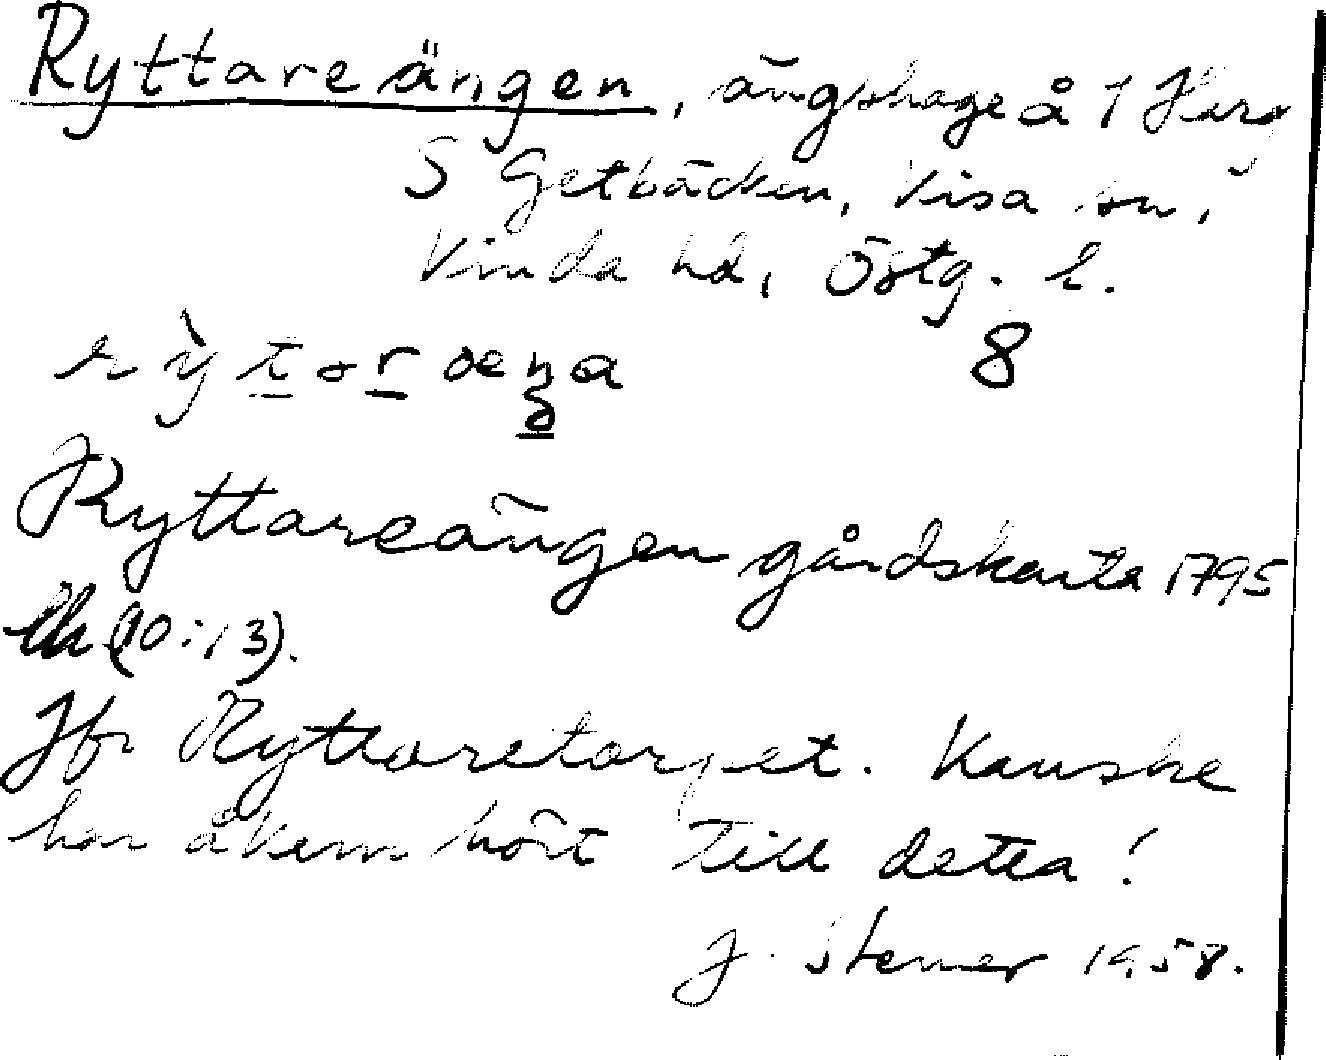 Ryttareängen, ängshage å 1 Harg
S Getbäcken, Kisa sn,
Kinda hd, Östg. l.
rỳtoræŋa 8
Ryttareängen gårdskarta 1795
(10:13).
Jfr Ryttaretorpet. Kanske
har åkern hört till detta!
J. Stener 1958.